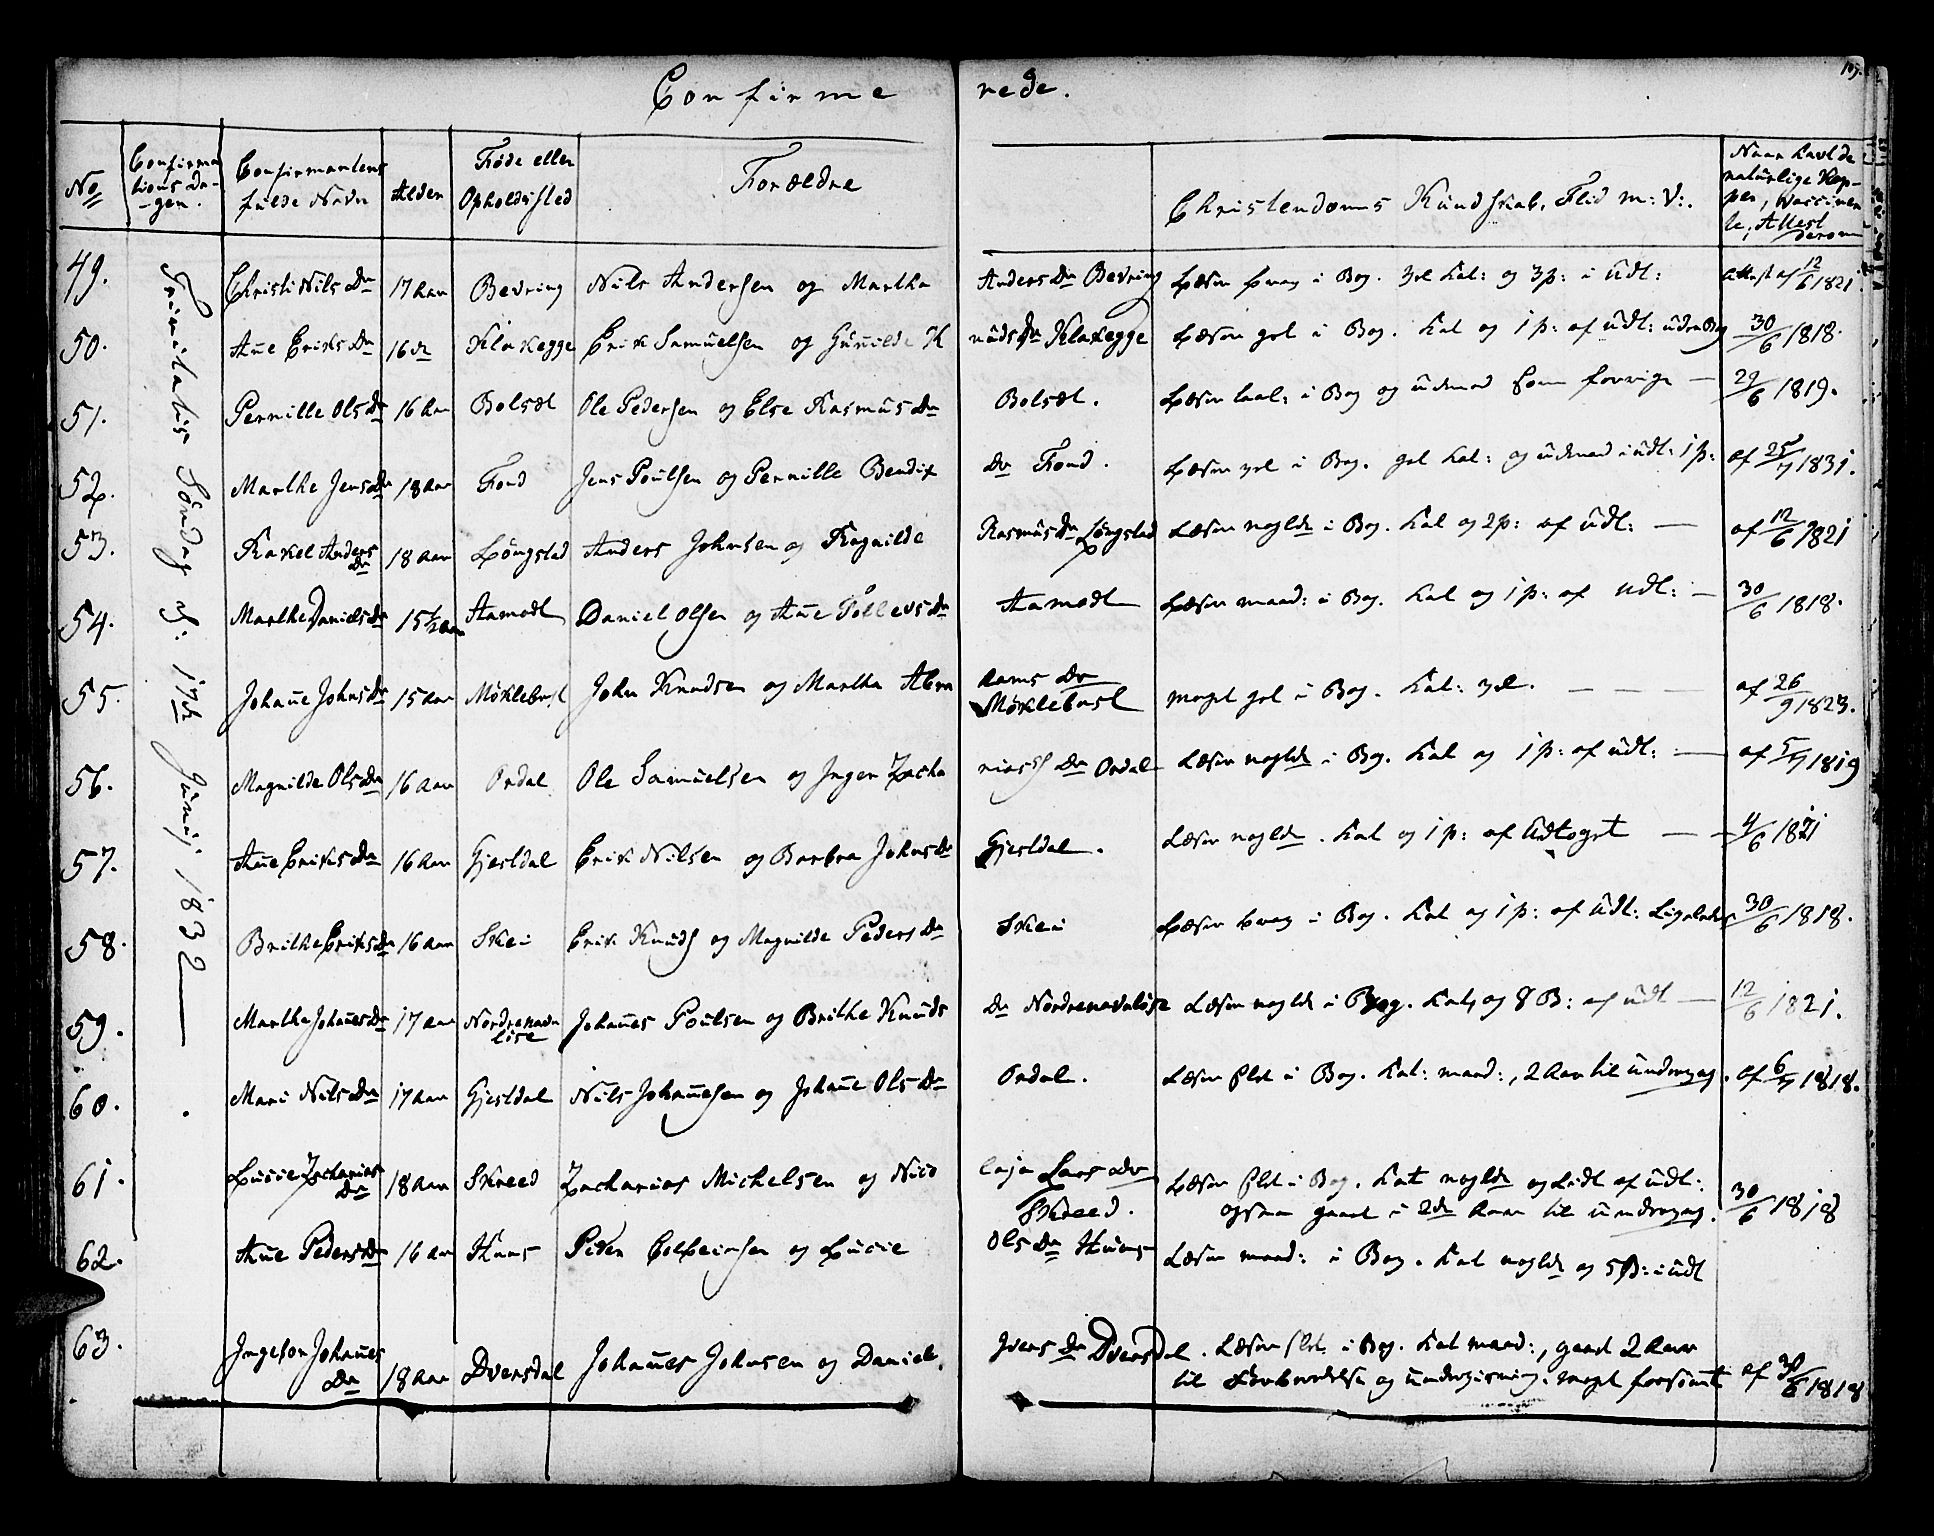 Confirmerede.
109.
No
Confirma
tions Da-
gen.
Confirmantens
fulde Navn
Alder
Føde eller
Opholdssted
Forældre
Christendoms Kundskab, Flid m: V:.
Naar havt de
naturlige Kop-
per, Vaccinere-
de, Attest
derom
Trinitatis Søndag d: 17de Junij. 1832
49. Christi Nils Dr 17 Aar Bevring Nils Andersen og Martha Anders Dr Bevring Læser svag i Bog. gol Kat: og 3 p: i Udt: Attest af 12/6 1821
50. Ane Eriks Dr 16 dr Klakegge Erik Samuelsen og Gunilde Knuds Dr Klakegge Læser got i Bog. Kat og 1 p: af Udt: uden Bog 30/6 1818.
51. Pernille Ols Dr 16 Aar Bolsæt Ole Pedersen og Else Rasmus Dr Bolsæt. Læser taal: i Bog og udenad som forrige — 29/6 1819.
52. Marthe Jens Dr 18 Aar Fond Jens Poulsen og Pernille Bendix Dr Fond. Læser got i Bog. got Kat: og udenad i udt: 1 p: af 25/7 1831.
53. Rakel Anders Dr 18 Aar Løngstad Anders Johnsen og Ragnilde Rasmus Dr Løngstad Læser nogldr i Bog. Kat og 2 p: af Udt: — af 12/6 1821
54. Marthe Daniels Dr 15 1/2 Aar Aamodt Daniel Olsen og Ane Tollevs Dr Aamodt Læser maad: i Bog. Kat og 1 p: af Udt: — 30/6 1818.
55. Johanne Johns Dr 15 Aar Møklebust John Knudsen og Martha Abrahams Dr Møklebust meget got i Bog. Kat: gol. — — — af 26/9 1823.
56. Magnilde Ols Dr 16 Aar Ordal Ole Samuelsen og Inger Zacharias Dr Ordal Læser nogldr i Bog. Kat og 1 p: af udt: — af 5/7 1819
57. Ane Eriks Dr 16 Aar Gjesdal Erik Nilsen og Barbra Johns Dr Gjesdal. Læser nogldr. Kat og 1 p: af Udtoget — — 4/6 1821
58. Brithe Eriks Dr 16 Aar Skei Erik Knuds og Magnilde Peders Dr Skei Læser svag i Bog. Kat og 1 p: af Udt: Ligeledes 30/6 1818.
59. Martha Johannes Dr 17 Aar Nordrenavn løse Johannes Poulsen og Brithe Knuds Dr Nordrenavnløse Læser nogldr i Bog. Kat, og 8 B: af udt — 12/6 1821.
60. Mari Nils Dr 17 Aar Gjesdal Nils Johannesen og Johanne Ols Dr Ordal. Læser slet i Bog. Kat: maad:, 2 Aar til undervsg. af 6/7 1818.
61. Lucie Zacharias Dr 18 Aar Skreed Zacharias Michelsen og Nicolaja Lars Dr Skreed. Læser slet i Bog. Kat nogldr og Lidt af udt:
ogsaa gaaet i 2de Aar til undervsg. 30/6 1818
62. Ane Peders Dr 16 Aar Huus Peder Colbeinsen og Lucie Ols Dr Huus Læser maad: i Bog. Kat nogldr og 5 B: i udt
63. Ingebor Johannes Dr 18 Aar Dversdal Johannes Johnsen og Daniel Ivers Dr Dversdal. Læser slet i Bog. Kat maad:, gaaet 2 Aar
til Forberedelse og undervisning. meget forsømt af 30/6 1818